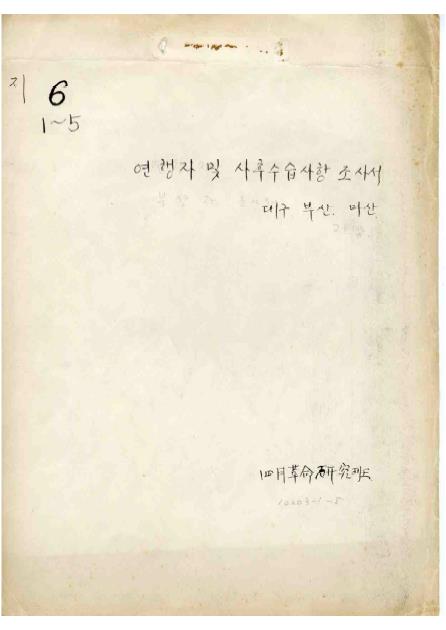 지 6
1~5
연행자 및 사후수습사항 조사서
대구 부산. 마산.
四月革命硏究班
10203-1-5